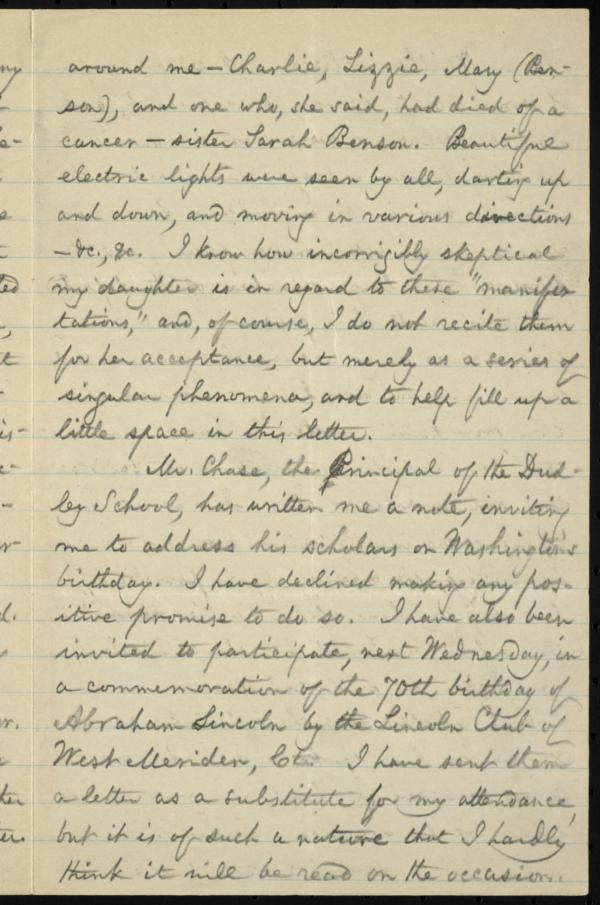 around me – Charlie, Lizzie, Mary (Ben-
son), and one who, she said, had died of a
cancer – sister Sarah Benson. Beautiful
electric lights were seen by all, darting up
and down, and moving in various directions
– &c., &c. I know how incorrigibly skeptical
my daughter is in regard to these "manifes
tations," and, of course, I do not recite them
for her acceptance, but merely as a series of
singular phenomena, and to help fill up a
little space in this letter.
Mr. Chase, the Principal of the Dud-
ley School, has written me a note, inviting
me to address his scholars on Washington's
birthday. I have declined making any pos-
itive promise to do so. I have also been
invited to participate, next Wednesday, in
a commemoration of the 70th birthday of
Abraham Lincoln by the Lincoln Club of
West Meriden, Ct. I have sent them
a letter as a substitute for my attendance,
but it is of such a nature that I hardly
think it will be read on the occasion.